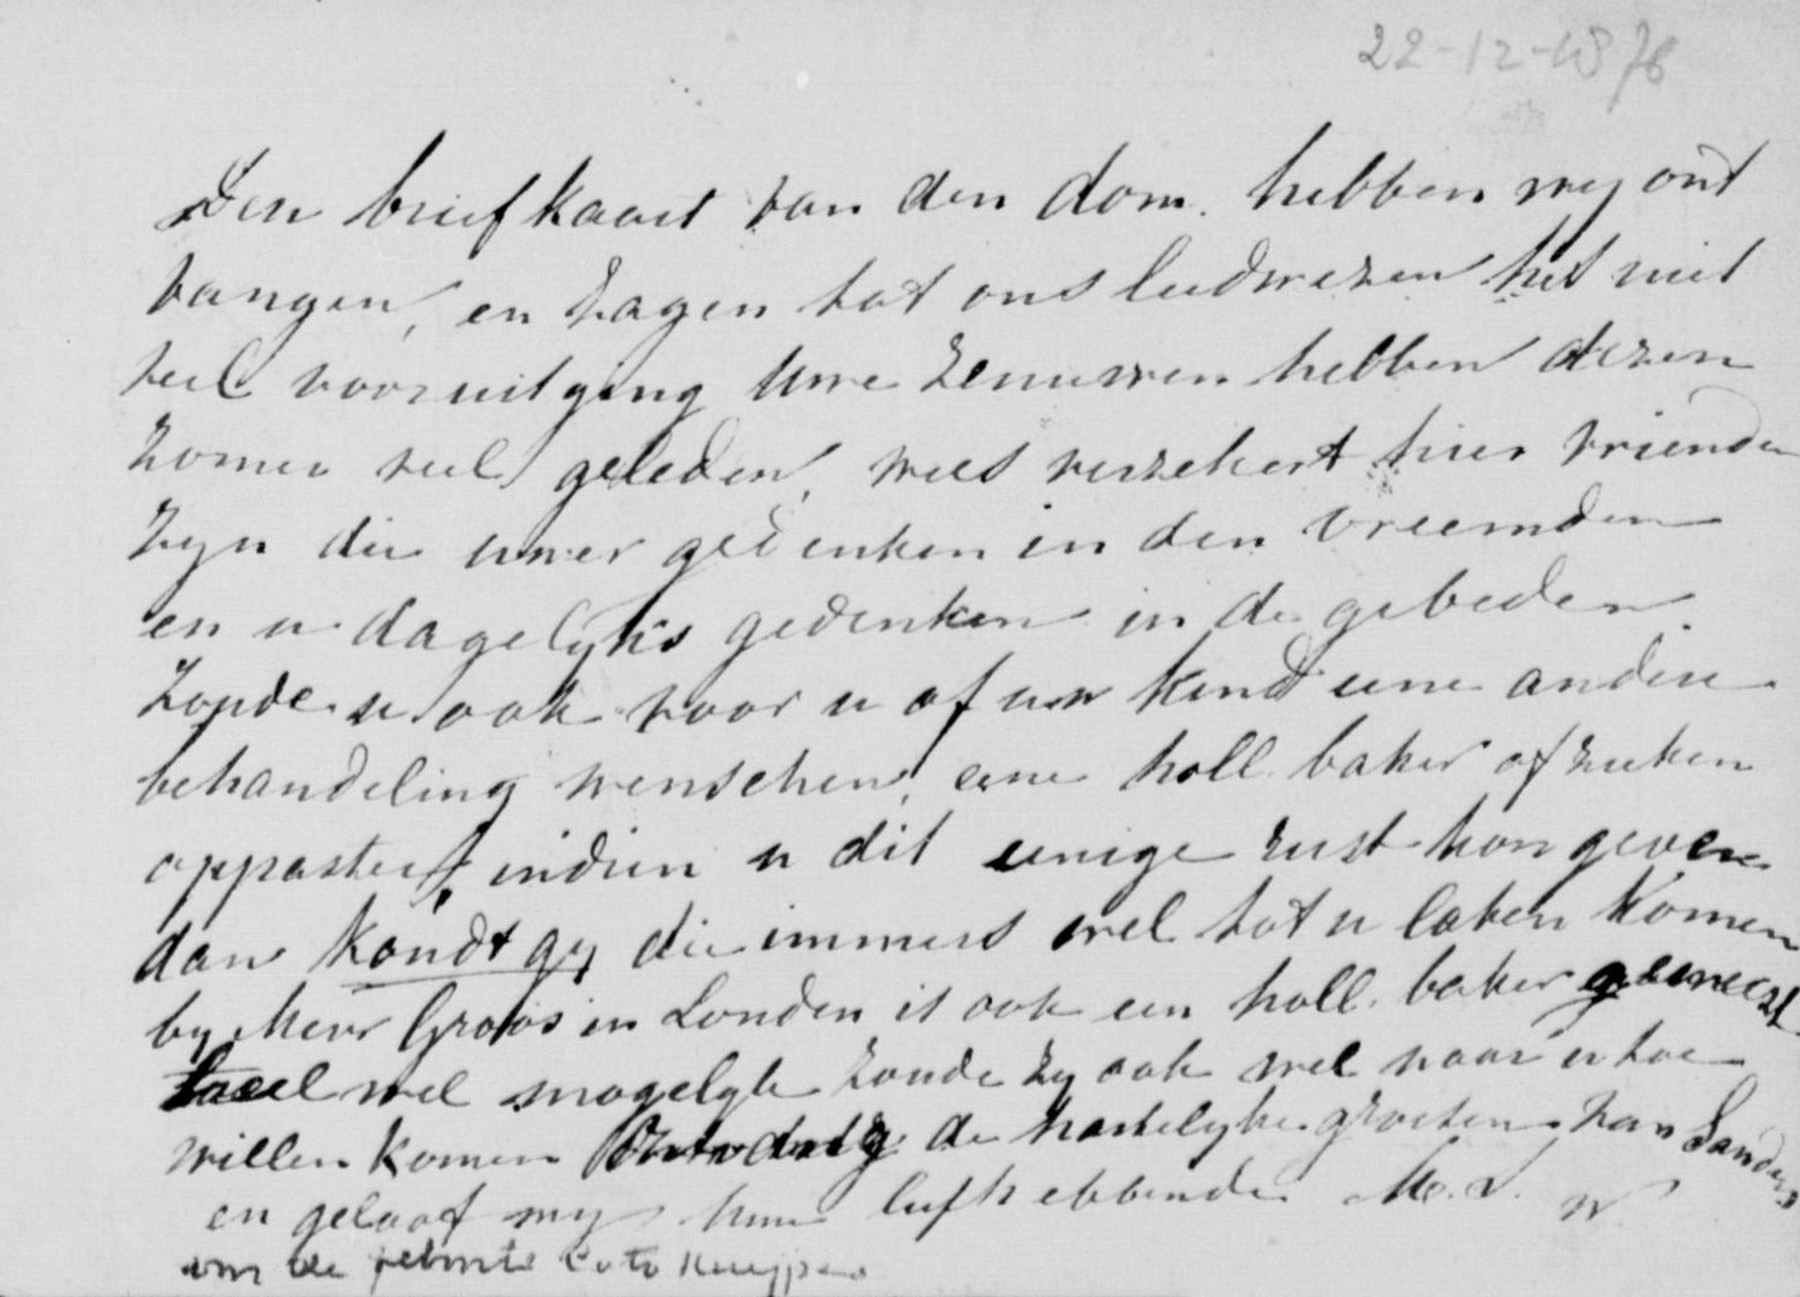 22-12-1876
Den briefkaart van den dom. hebben wij ont
vangen, en zagen tot ons leedwezen het niet
veel vooruitging Uwe Zenuwen hebben dezen
Zomer veel geleden, wees verzekert hier vrienden
Zijn die uwer gedenken in den vreemden
en u dagelyks gedenken in de gebeden.
Zoude u ook voor u of uw kind eene andere
behandeling wenschen, eene holl. baker of zieken
oppaster, indien u dit eenige rust kon geven
dan kondt gij die immers wel tot u laten Komen
by Mevr Groos in Londen is ook een holl. baker geweest
heel wel mogelyk Zoude Zy ook wel naar u toe
willen komen de hartelyke groeten van Sanders
en geloof my hun liefhebbende M. S.
om de geboorte Kuyper